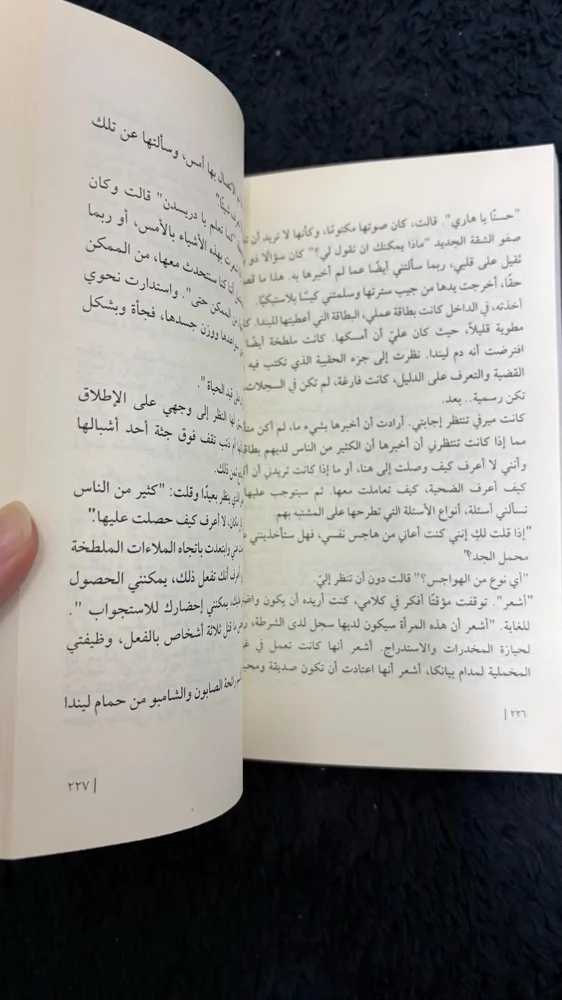 "حسنًا يا هاري". قالت، كان صوتها مكتومًا، وكأنها لا تريد أن
صفو الشقة الجديد "ماذا يمكنك ان تقول لي؟" كان سؤالا ذو
ثقيل على قلبي، ربما سألتني أيضًا عما لم أخبرها به. هذا ما
حقًا، أخرجت يدها من جيب سترتها وسلمتني كيسًا بلاستيكيًا.
أخذته، في الداخل كانت بطاقة عملي، البطاقة التي أعطيتها لليندا.
مطوية قليلاً، حيث كان عليّ أن أمسكها. كانت ملطخة أيضًا
افترضت أنه دم ليندا. نظرت إلى جزء الحقيبة الذي تكتب فيه
القضية والتعرف على الدليل، كانت فارغة، لم تكن في السجلات.
تكن رسمية.. بعد.
كانت ميرفي تنتظر إجابتي. أرادت أن أخبرها بشيء ما، لم أكن
مما إذا كانت تنتظرني أن أخبرها أن الكثير من الناس لديهم
وأنني لا أعرف كيف وصلت إلى هنا، أو ما إذا كانت تريدن أن
كيف أعرف الضحية، كيف تعاملت معها. ثم سيتوجب عليها
تسألني أسئلة، أنواع الأسئلة التي تطرحها على المشتبه بهم.
"إذا قلت لكِ إنني كنت أعاني من هاجس نفسي، فهل ستأخذينني
محمل الجد؟"
"أي نوع من الهواجس؟" قالت دون أن تنظر إليّ.
"أشعر". توقفت مؤقتًا أفكر في كلامي، كنت أريده أن يكون
للغاية. "أشعر أن هذه المرأة سيكون لديها سجل لدى الشرطة،
لحيازة المخدرات والاستدراج. أشعر أنها كانت تعمل في
المخملية لمدام بيانكا، أشعر أنها اعتادت أن تكون صديقة
٢٢٦ |
الاتصال بها أمس، وسألتها عن تلك
"كما تعلم يا دريسدن" قالت وكان
بهذه الأشياء بالأمس، أو ربما
أننا كنا ستتحدث معها، من الممكن
من الممكن حتى". واستدارت نحوي
ووزن جسدها، فجأة وبشكل
قيد الحياة".
لها النظر إلى وجهي على الإطلاق
تقف فوق جثة أحد أشبالها
ذلك.
ينظر بعيدًا وقلت: "كثير من الناس
لا أعرف كيف حصلت عليها."
وابتعدت باتجاه الملاءات الملطخة
أنك تفعل ذلك، يمكنني الحصول
يمكنني إحضارك للاستجواب".
قتل ثلاثة أشخاص بالفعل، وظيفتي
رائحة الصابون والشامبو من حمام ليندا
٢٢٧ |